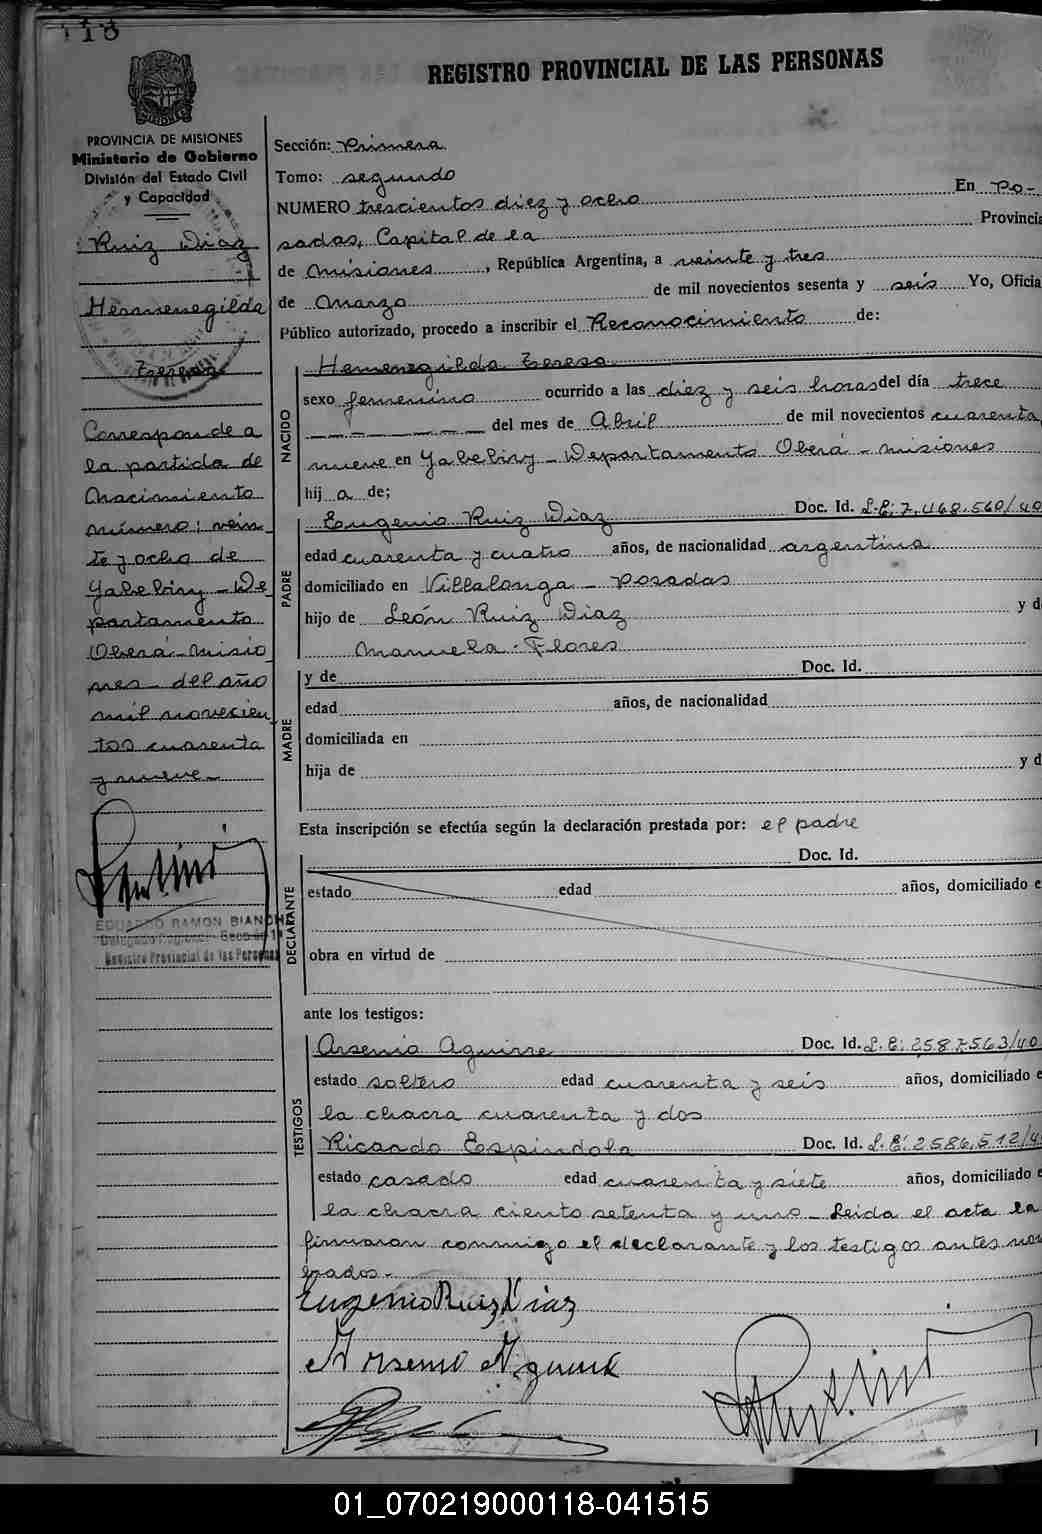 118
REGISTRO PROVINCIAL DE LAS PERSONAS
PROVINCIA DE MISIONES
Ministerio de Gobierno
División del Estado Civil
y Capacidad
Ruiz Diaz
Hermenegilda
Teresa
Corresponde a
la partida de
nacimiento
número: vein
te y ocho de
Yabebiry - De
partamento
Oberá - Misio
nes - del año
mil novecien
tos cuarenta
y nueve -
EDUARDO RAMON BIANCHI
Delegado Regional - Sección 1ª
Registro Provincial de las Personas
Sección: Primera
Tomo: segundo
NUMERO trescientos diez y ocho En Po-
sadas, Capital de la Provincia
de Misiones, República Argentina, a veinte y tres
de Marzo de mil novecientos sesenta y seis Yo, Oficia
Público autorizado, procedo a inscribir el Reconocimiento de:
NACIDO
Hemenegilda Teresa
sexo femenino ocurrido a las diez y seis horas del día trece
del mes de Abril de mil novecientos cuarenta
nueve en Yabebiry - Departamento Oberá - misiones
hij a de;
PADRE
Eugenio Ruiz Diaz Doc. Id. L.E: 7.468.560/40
edad cuarenta y cuatro años, de nacionalidad argentina
domiciliado en Villalonga - Posadas
hijo de León Ruiz Diaz y d
Manuela Flores
MADRE
y de Doc. Id.
edad años, de nacionalidad
domiciliada en
hija de y d
Esta inscripción se efectúa según la declaración prestada por: el padre
DECLARANTE
Doc. Id.
estado edad años, domiciliado e
obra en virtud de
ante los testigos:
TESTIGOS
Arsenio Aguirre Doc. Id. L.E: 2587563/40
estado soltero edad cuarenta y seis años, domiciliado e
la chacra cuarenta y dos
Ricardo Espindola Doc. Id. L.E: 2586.512/4
estado casado edad cuarenta y siete años, domiciliado e
la chacra ciento setenta y uno - Leida el acta la
firmaron conmigo el declarante y los testigos antes nom
brados.-
Eugenio Ruiz Diaz
Arsenio Aguirre
01_070219000118-041515